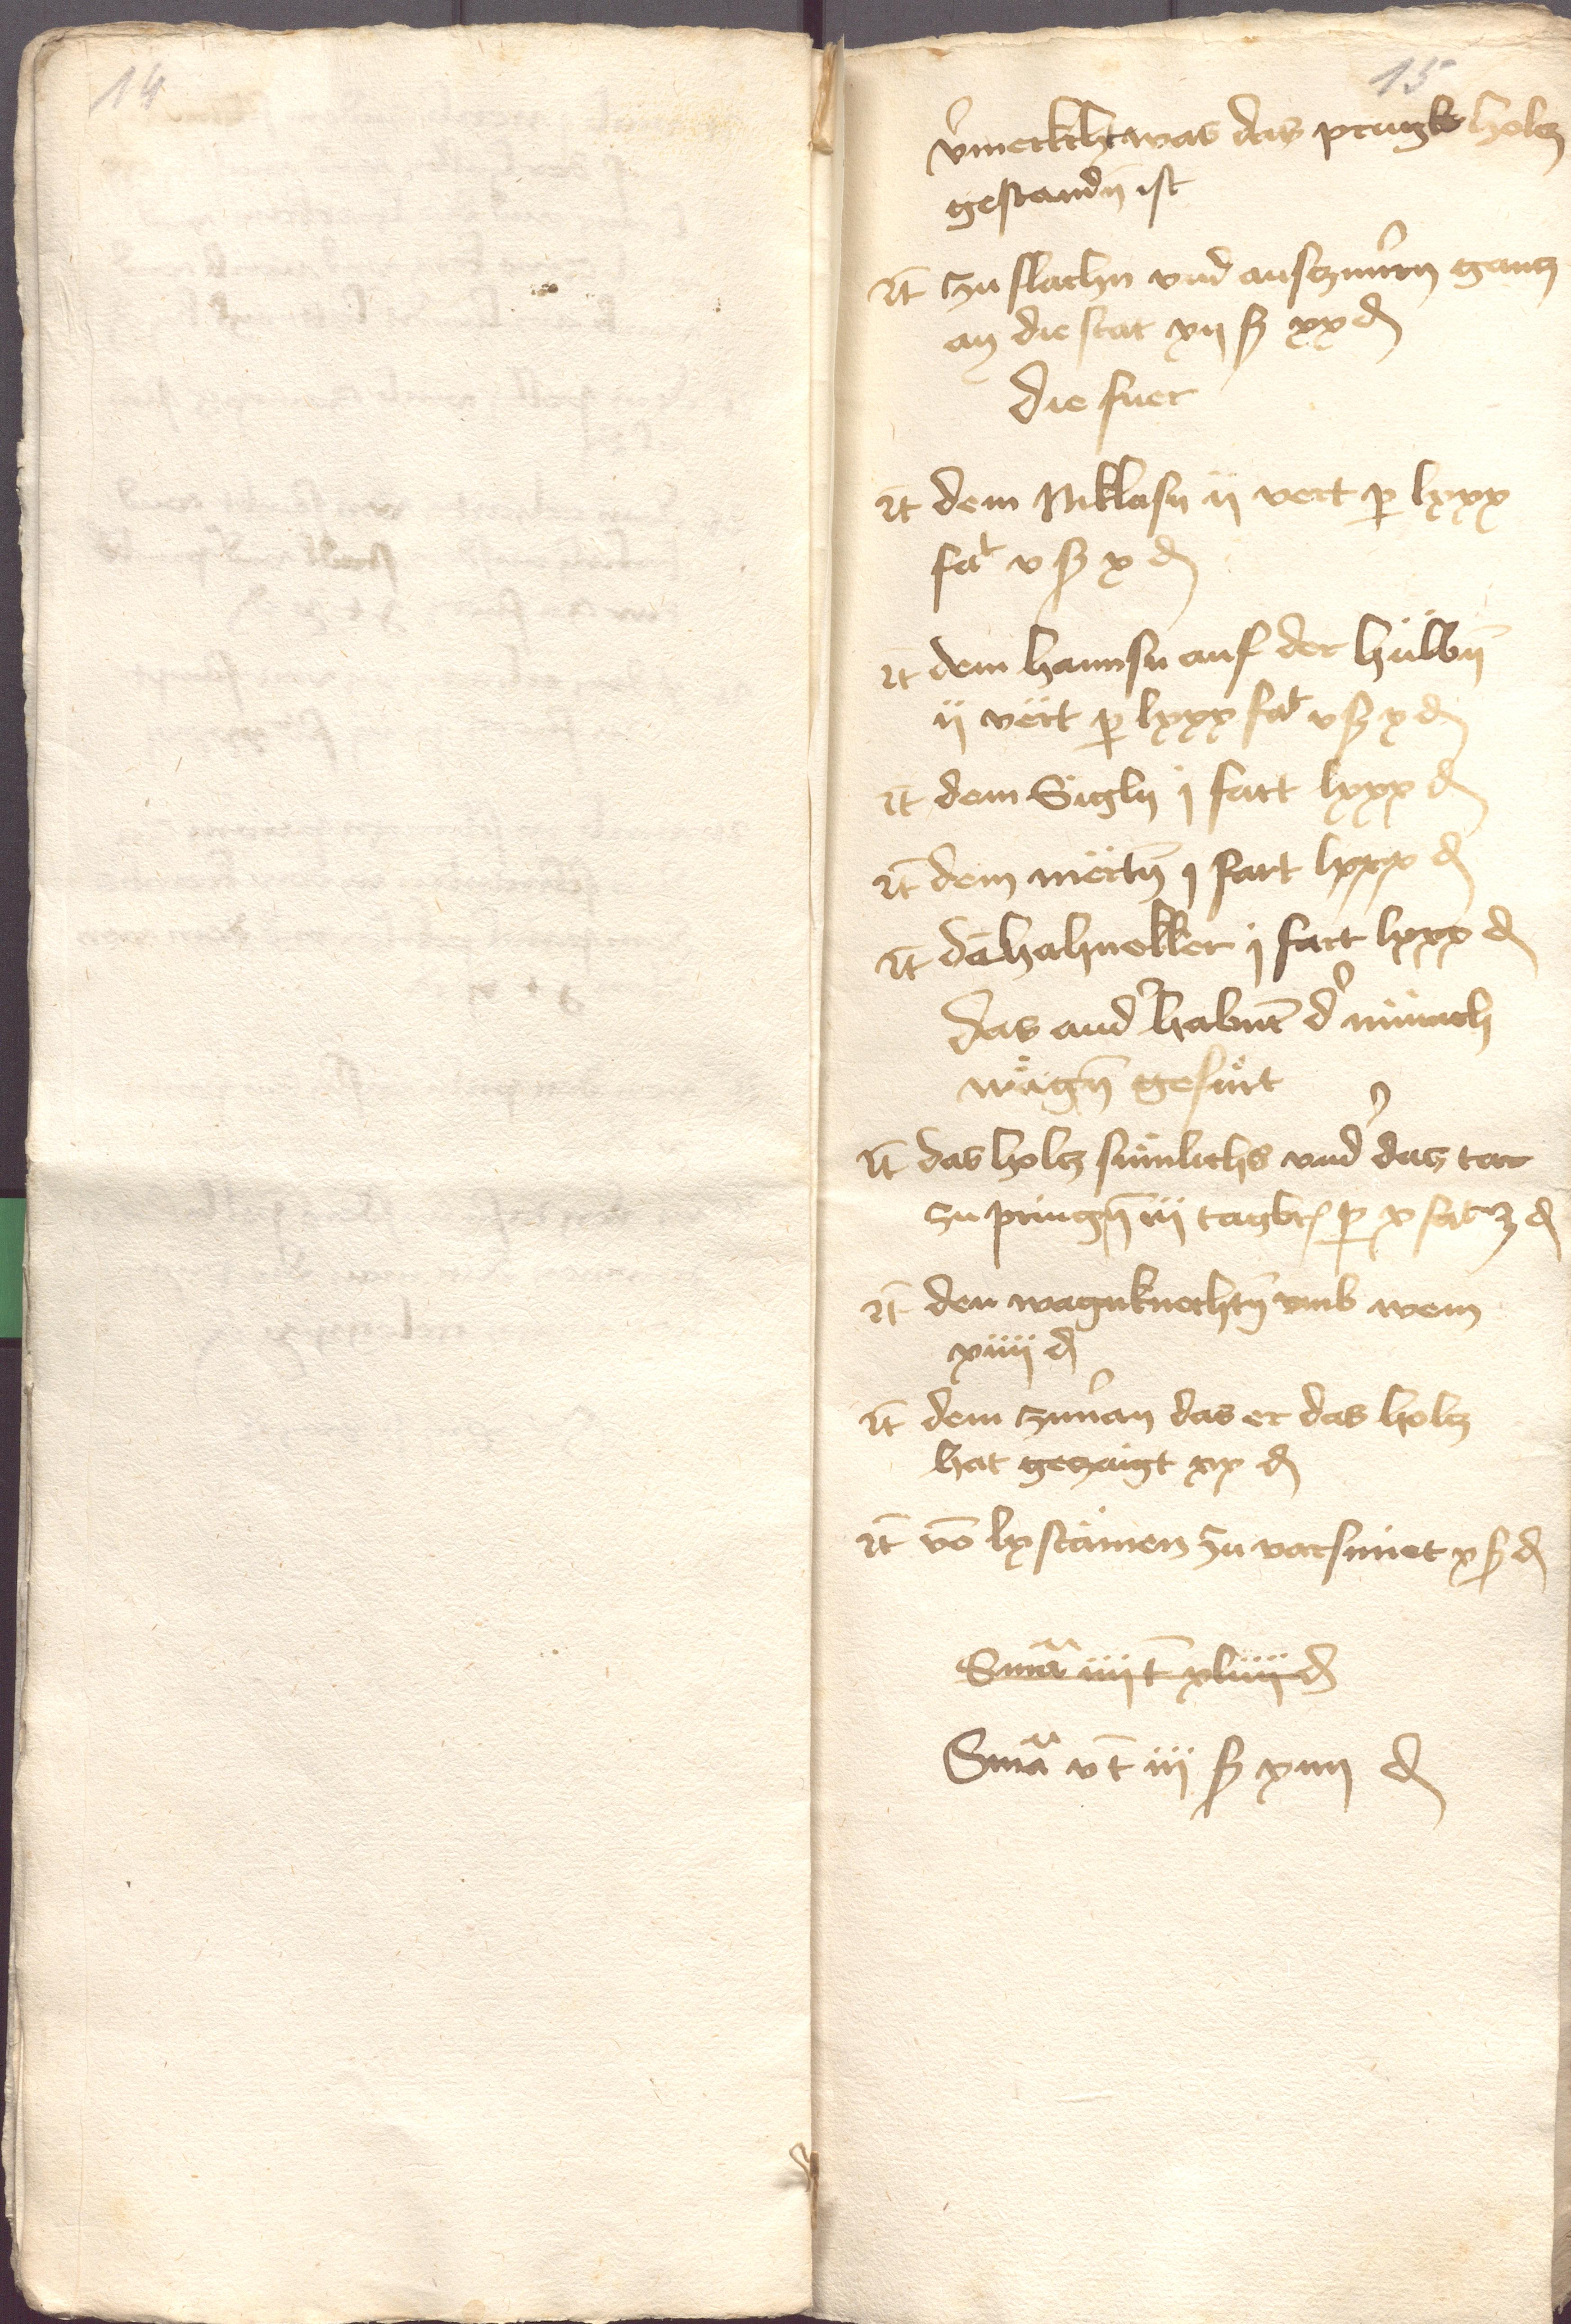 14
15
v̄merkcht was das prugk holcz
gestandn̄ ist
It̄ zu slachn vnd auszimern gancz
an die stat xij ß xx d
die fuer
It̄ dem Niklasn ij vert p lxxx
fat v ß x d
It̄ dem hannsn auf der hülbn̄
ij vërt p lxxx fat v ß x d
It̄ dem Sigln j fart lxxx d
It̄ dem mërtn̄ j fart lxxx d
It̄ dē hahnekker j fart lxxx d
das and habnt d münich
wägn̄ gefürt
It̄ das holcz sümlichs vnd das tor
zu pringn̄ iij tagbr p x fat z d
It̄ den wagnknechtn̄ vmb wein
xiiij d
It̄ dem zimman das er das holcz
hat geczaigt xx d
It̄ vō lx stämen zu varsmiet x ß d
Sma iiij t xliiij d
Sma v t iii ß xiiij d